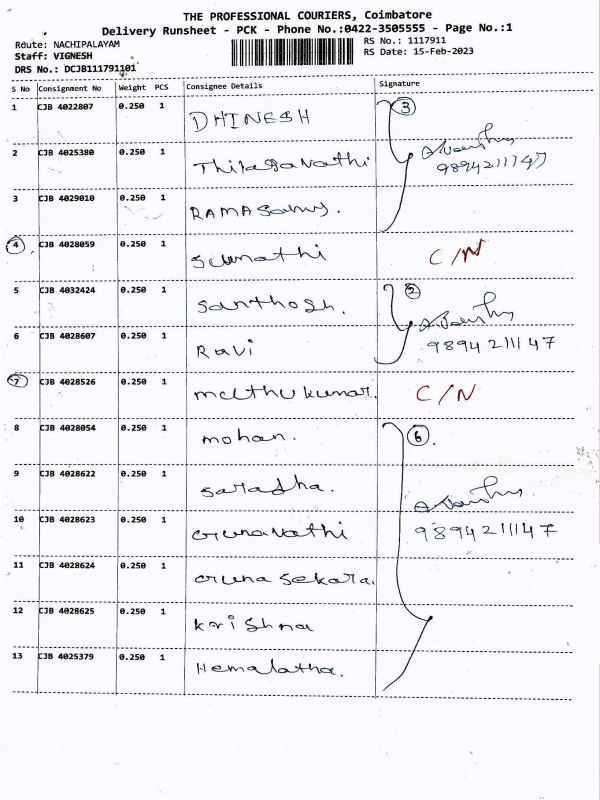 THE PROFESSIONAL COURIERS, Coimbatore
Delivery Runsheet - PCK - Phone No.:0422-3505555 - Page No.:1
Route: NACHIPALAYAM
RS No.: 1117911
Staff: VIGNESH
RS Date: 15-Feb-2023
DRS No.: DCJB111791101
S No Consignment No Weight PCS Consignee Details Signature
1 CJB 4022807 0.250 1 DHINESH 3
2 CJB 4025380 0.250 1 Thilagavathi 9894211147
3 CJB 4029010 0.250 1 RAMASamy.
4 CJB 4028059 0.250 1 Sumathi C/N
5 CJB 4032424 0.250 1 Santhosh. 2
6 CJB 4028607 0.250 1 Ravi 9894211147
7 CJB 4028526 0.250 1 muthukumar. C/N
8 CJB 4028054 0.250 1 mohan. 6.
9 CJB 4028622 0.250 1 Saradha.
10 CJB 4028623 0.250 1 Gunavathi 9894211147
11 CJB 4028624 0.250 1 Guna Sekara.
12 CJB 4028625 0.250 1 Krishna
13 CJB 4025379 0.250 1 Hemalatha.